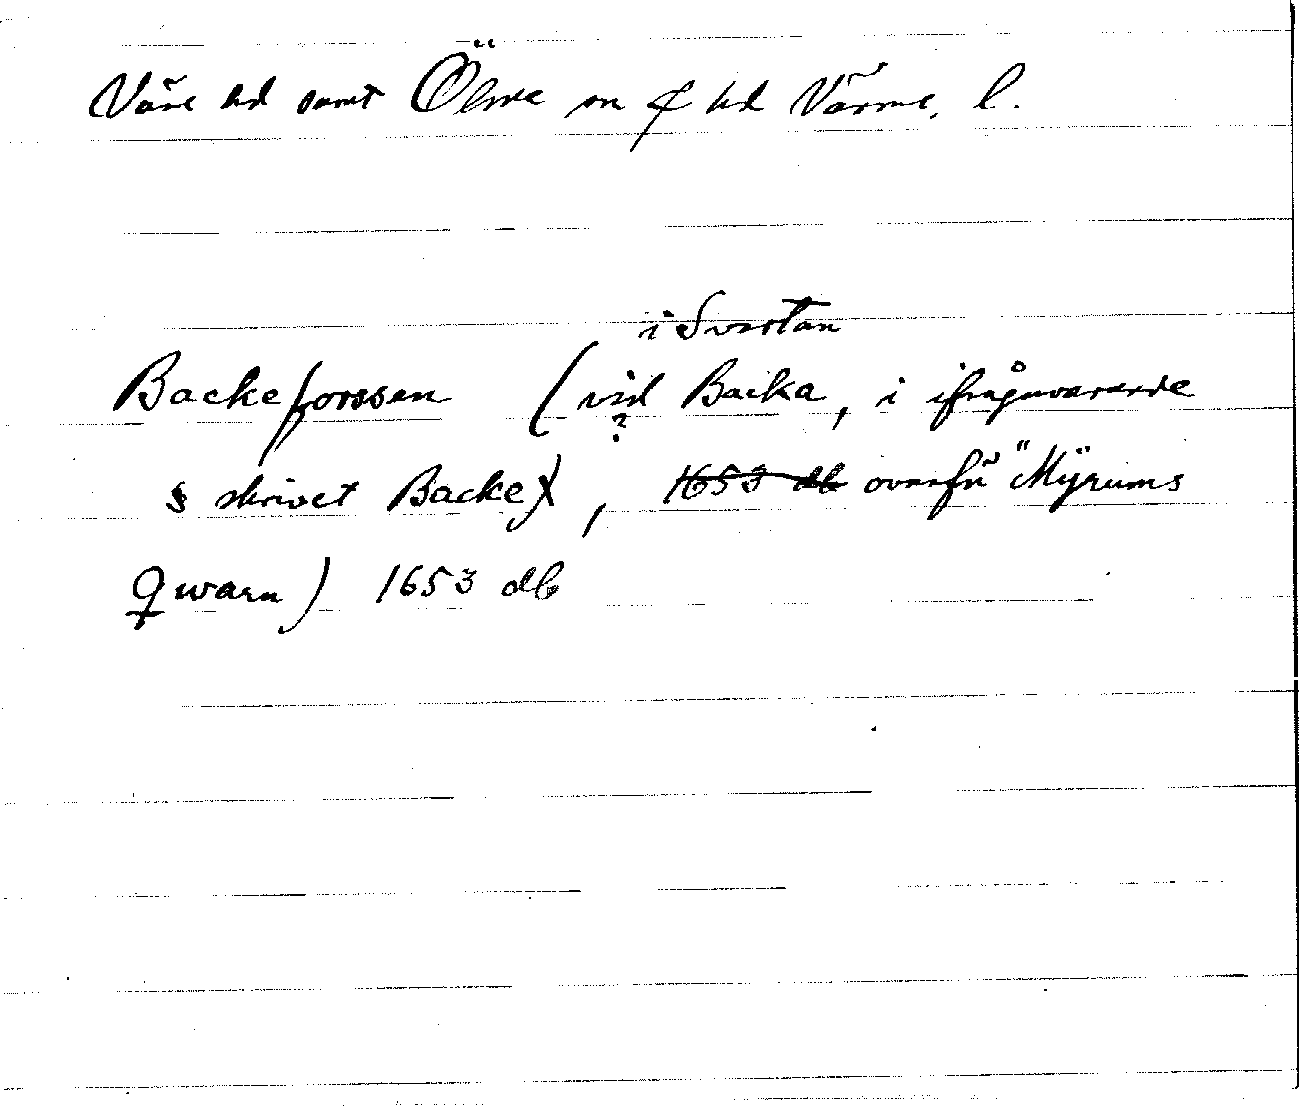 Väse hd samt Ölme sn f hd Värml.
i Svartån
Backeforssen (vid Backa, i ifrågavarande
?
§ skrivet Backe), 1653 db ovanför "Mÿrums
Qwarn) 1653 db